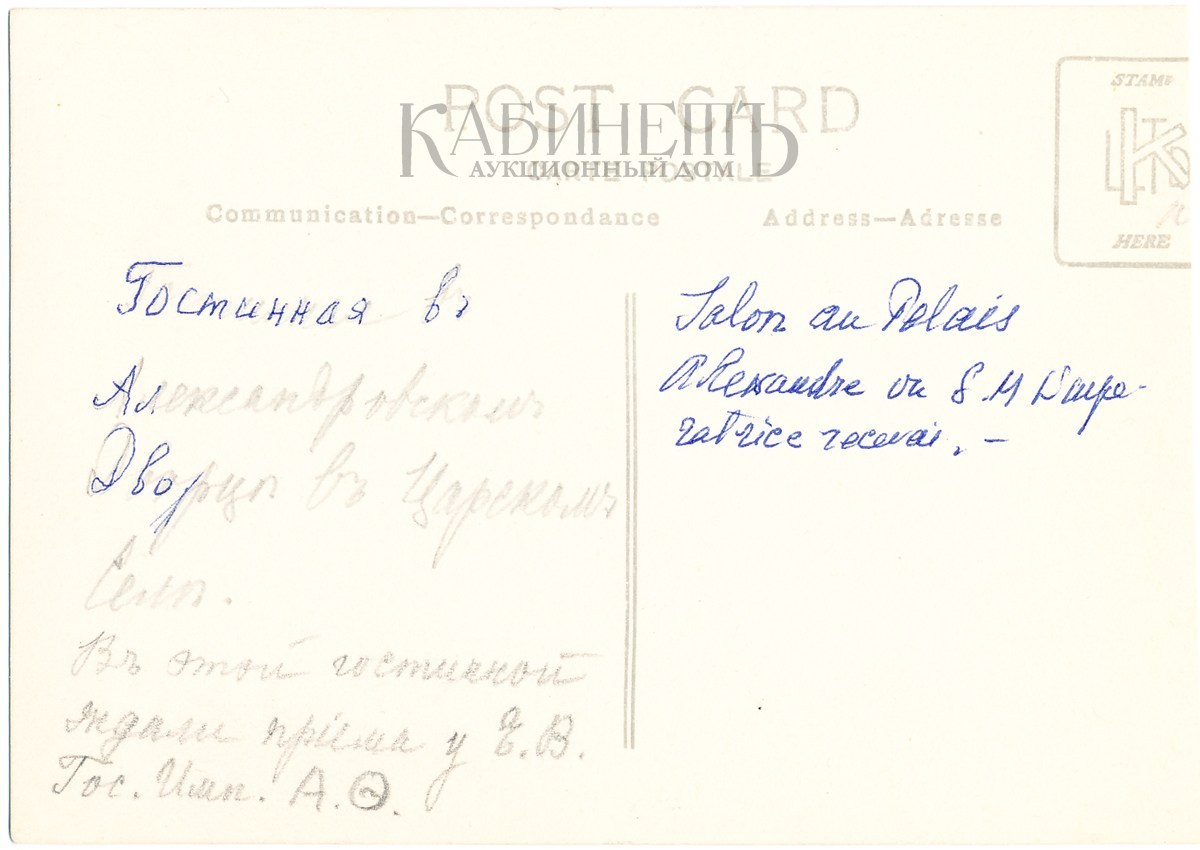 POST CARD
КАБИНЕТЪ
АУКЦИОННЫЙ ДОМ
CARTE POSTALE
Communication—Correspondance
Address—Adresse
STAMP
HERE
Гостинная въ
Александровскомъ
Дворцѣ въ Царскомъ
Селѣ.
Въ этой гостинной
ждали пріема у Е.В.
Гос. Имп. А.Ѳ.
Salon au Palais
Alexandre ou S.M l'Impé-
ratrice recevai. —